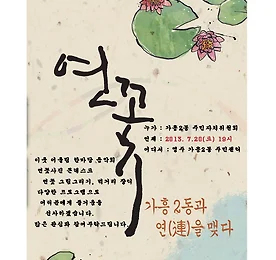 연꽃이
누가 : 가흥2동 주민자치위원회
언제 : 2013. 7.20(토) 19시
어디서 : 영주 가흥2동 주민센터
이웃 어울림 한마당 음악회
연꽃사진 콘테스트
연꽃 그림그리기, 먹거리 장터
다양한 프로그램으로
여러분에게 즐거움을
선사하겠습니다.
많은 관심과 참여부탁드립니다.
가흥2동과
연(蓮)을 맺다